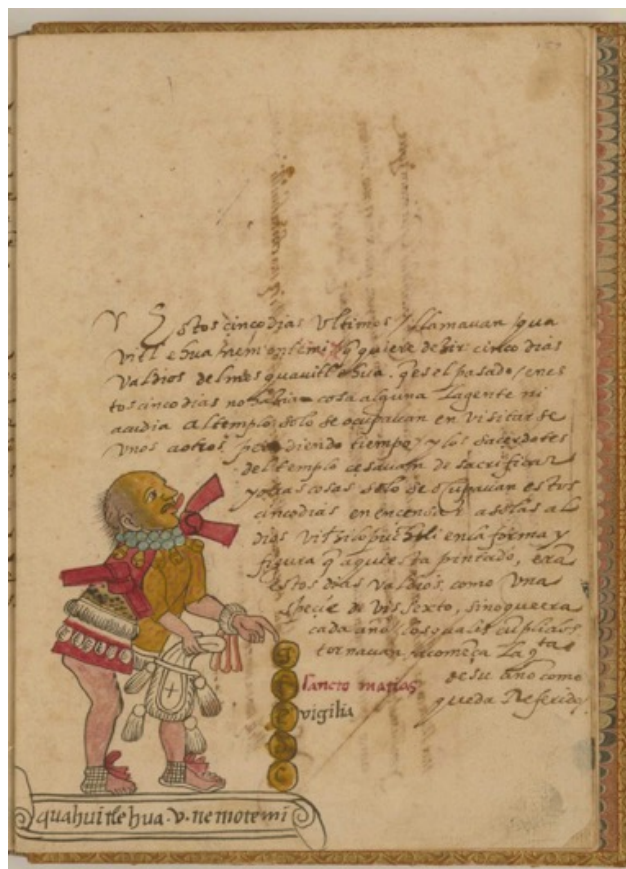 157
Estos cinco dias Ultimos / llamavan / qua
vitl ehua nemontemi / q̃ quiere dezir cinco dias
Valdios del mes quavitl ehua. q̃ es el pasado / en es
tos cinco dias no habia cosa alguna La gente ni
acudia al templo, solo se ocupavan en Visitarse
Unos a otros perdiendo tiempo / y los sacerdotes
del templo cesavan de sacrificar
y otras cosas solo se ocupavan estos
cinco dias en encensar a solas al
dios en la forma y
figura q̃ aqui esta pintado, erā
estos dias Valdios, como Una
specie de Vissexto, sino que era
cada año, los quales cumplidos
tornavan, a comēça La qta
de su año como
queda Referido
Sancto matias
vigilia
g
f
e
d
c
quahuitlehua .v. nemotemi